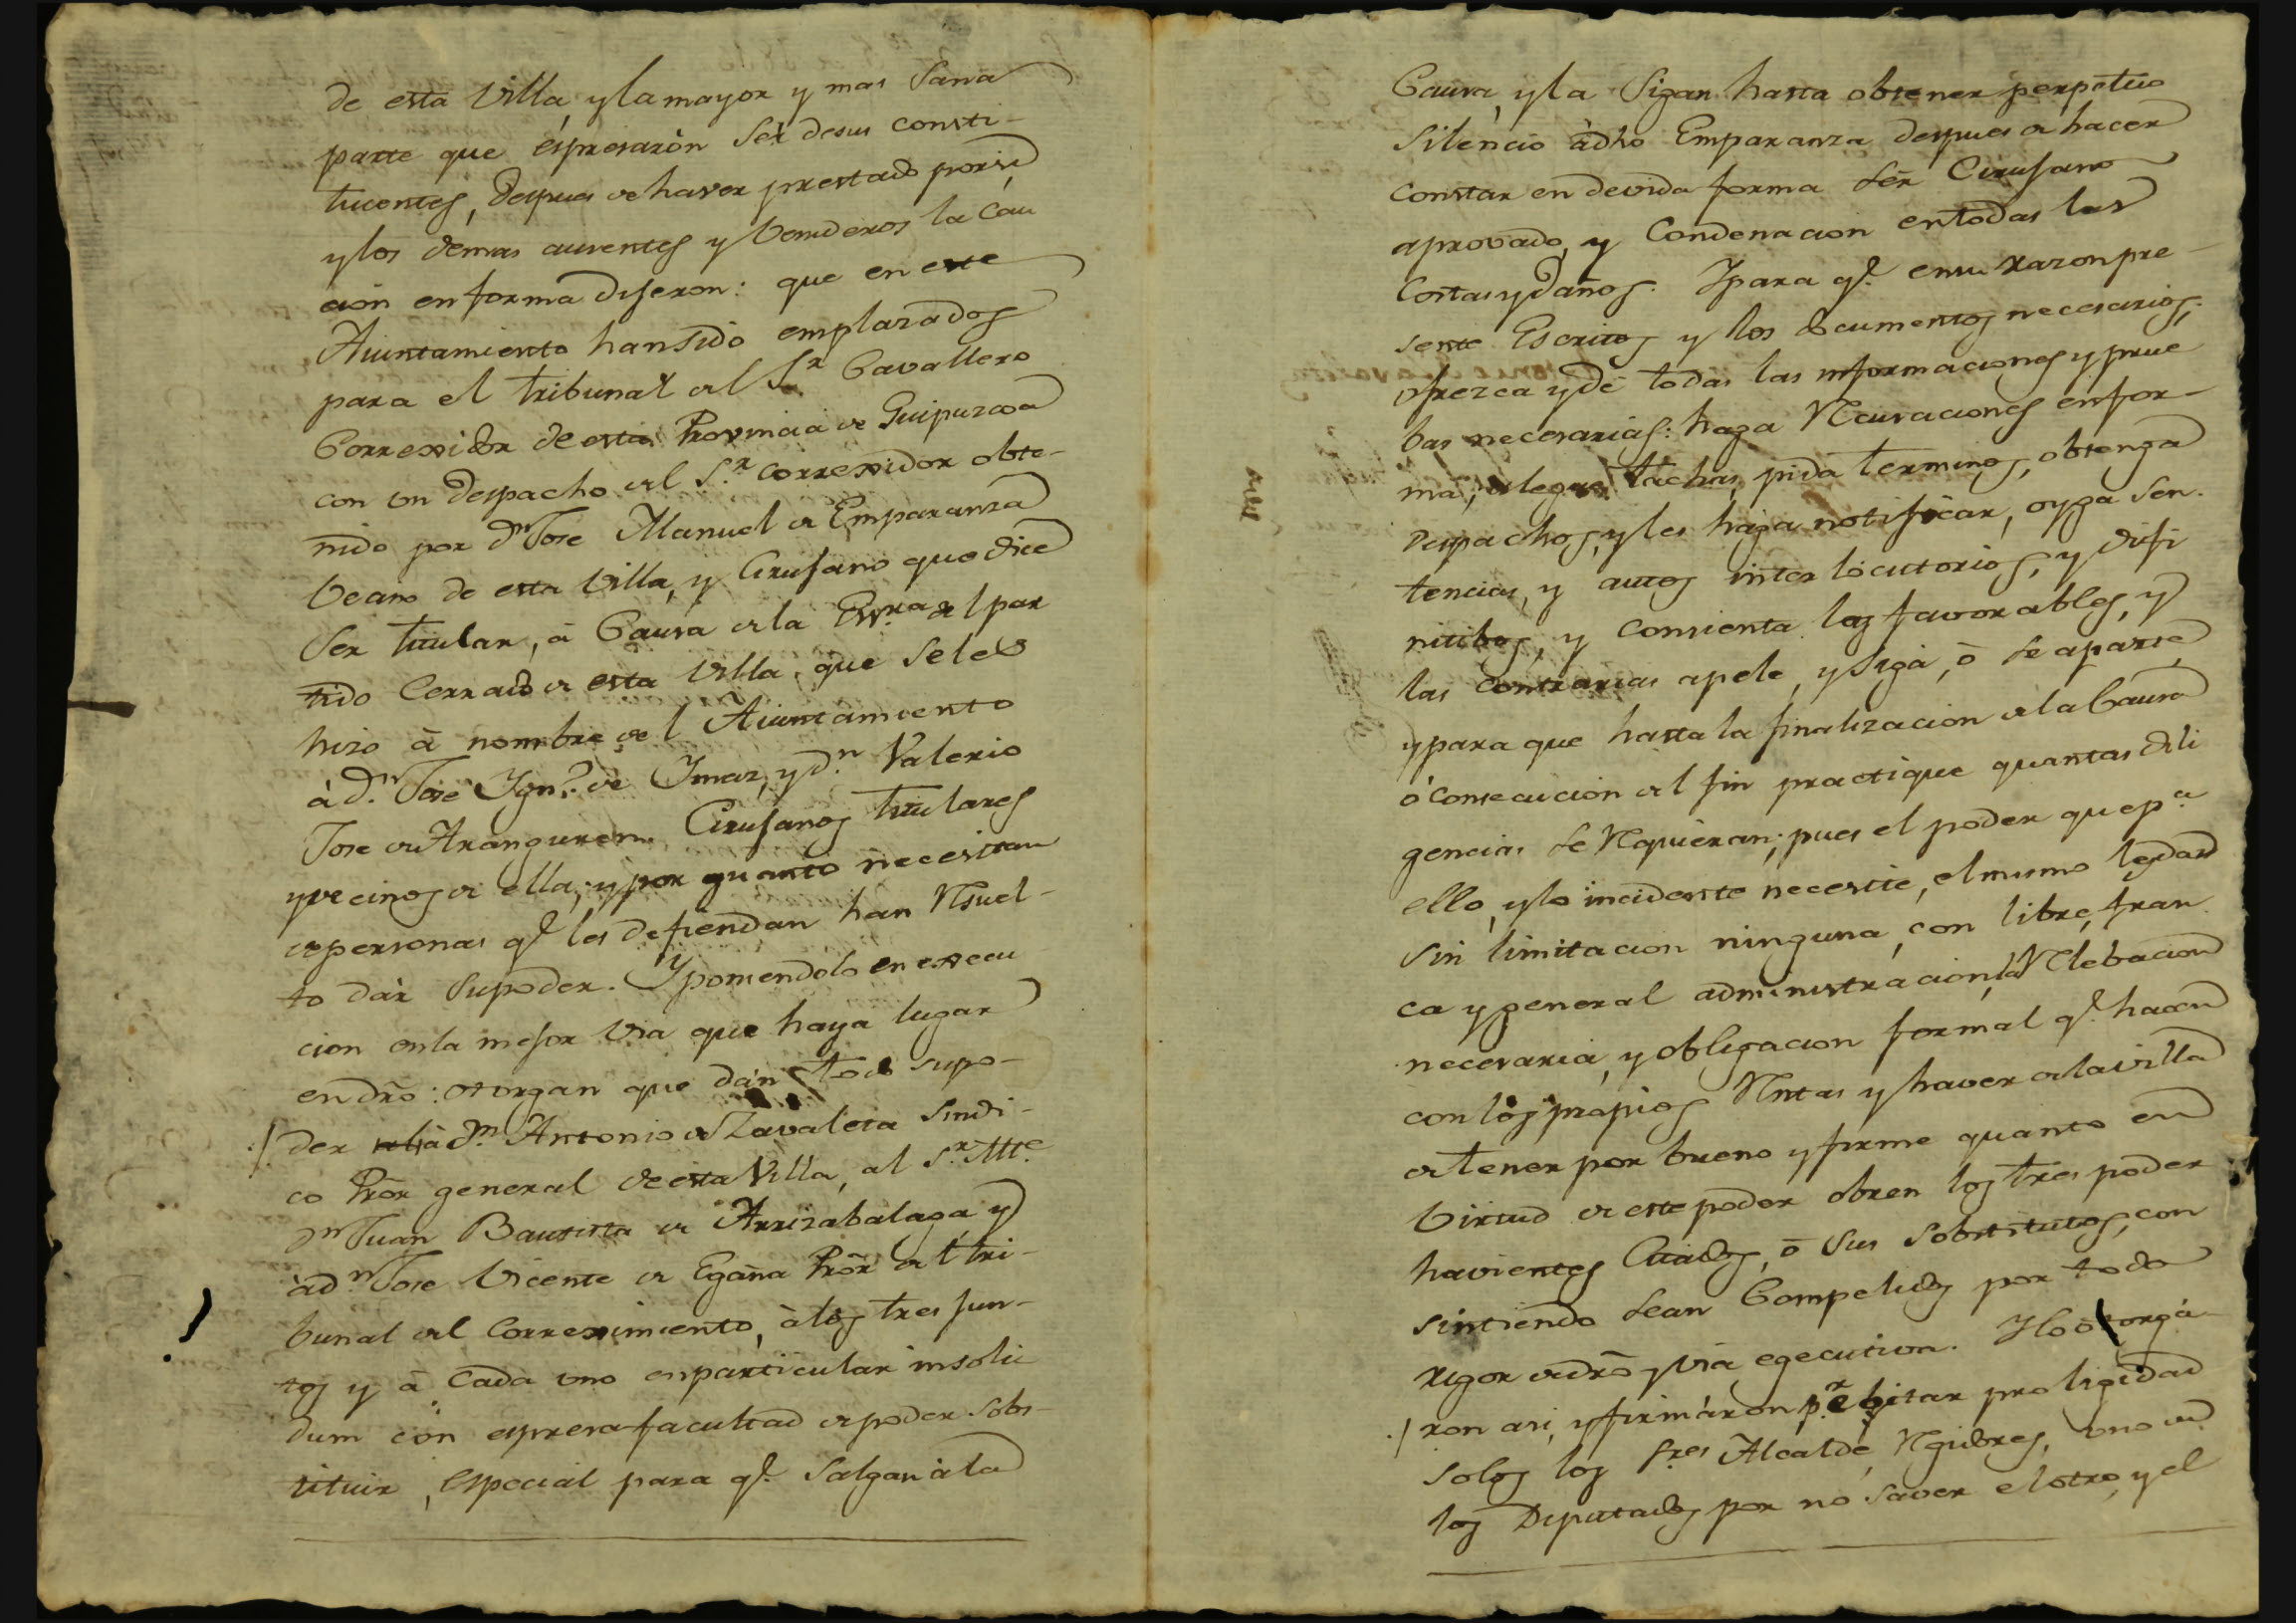 de esta Villa, y la mayor y mas Sana
parte que espresaròn Ser desus consti-
tuientes, despues de haver prestado por si,
y los demas ausentes y Venideros la Cau
cion en forma dijeron: que en este
Aiuntamiento han sido emplazados
para el tribunal del Sr Cavallero
Correxidor de esta Provincia de Guipuzcoa
con un despacho del S.r correxidor obte-
nido por dn Jose Manuel de Emparanza
Vecino de esta Villa, y Cirujano que dice
Ser titular, à Causa de la Ess.ra del par
tido Cerrado de esta Villa, que se les
hizo à nombre del Aiuntamiento
à D.n Josè Ign.o de Imaz, y d.n Valerio
Jose de Aranguren Cirujanos titulares
y vecinos de ella; y por quanto necesitan
de personas q.e les defiendan han Rsuel-
to dàr su poder. Y poniendolo en execu
cion en la mejor Via que haya lugar
en dro: otorgan que dàn todo su po-
der à dn Antonio de Zavaleta Sindi-
co Pror general de esta Villa, al S.r Ttte
dn Juan Bautista de Arrizabalaga y
à d.n Jose Vicente de Egaña Pror del tri-
bunal del Correximiento, à los tres jun-
tos y à Cada uno en particular insoli
dum con espresa facultad de poder sobs-
tituir, Especial para q.e Salgan à la
Causa, y la Sigan hasta obtener perpetuo
Silencio à dho Emparanza despues de hacer
constar en devida forma Ser Cirujano
aprovado, y Condenacion en todas las
Costas y Daños. Y para q.e en su razon pre-
sente Escritos y los documentos necesarios;
ofrezca y dè todas las informaciones y prue
bas necesarias: haga Rcusaciones en for-
ma; alegue tachas, pida terminos, obtenga
Despachos, y les haga notificar, oyga Sen-
tencias, y autos inter locutorios, y difi
nitibos, y consienta los favorables, y
las contrarias apele, y Siga, ò se aparte,
y para que hasta la finalizacion de la Causa
ò consecucion del fin practique quantas dili
gencias se Rquieran; pues el poder que p.a
ello, y lo incidente necesite, el mismo les dan
Sin limitacion ninguna, con libre, fran
ca y general administracion, la Rlebacion
necesaria, y obligacion formal q.e hacen
con los propios Rntas y haver de la villa
de tener por bueno y firme quanto en
Virtud de este poder obren los tres poder
havientes Citados, ò sus Sobstitutos, con
sintiendo sean Compelidos por todo
rigor de dro y via egecutiva. Y lo otorga-
ron asi, y firmàron p.r ebitar proligidad
solos los Sres Alcalde, Rgidores, uno de
los Diputados por no saver el otro, y el